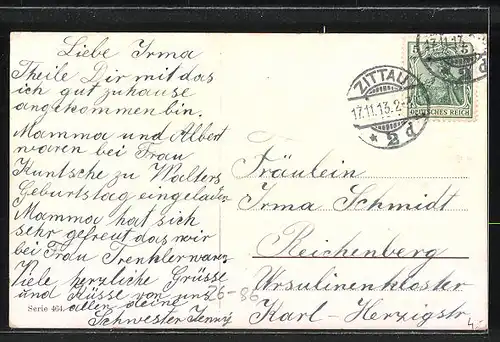 Liebe Irma
Theile Dir mit das
ich gut zuhause
angekommen bin.
Mamma und Albert
waren bei Frau
Kuntsche zu Walters
Geburtstag eingeladen
Mamma hat sich
sehr gefreut das wir
bei Frau Trenkler waren
Viele herzliche Grüsse
und Küsse von uns
allen deine
Schwester Jenny
Serie 464.
26-86
ZITTAU
17.11.13.2-3
* 2 d
17.11.13.
* 2 d
5 5
DEUTSCHES REICH
Fräulein
Irma Schmidt
Reichenberg
Ursulinenkloster
Karl-Herzigstr
4.-